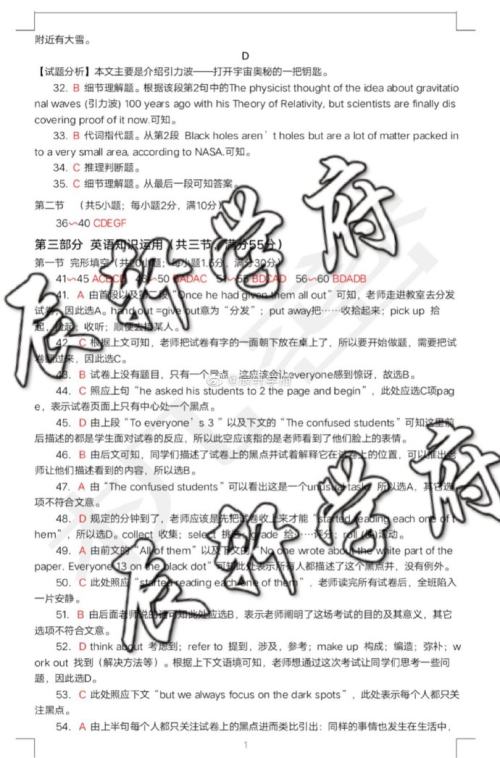 附近有大雪。
D
【试题分析】本文主要是介绍引力波——打开宇宙奥秘的一把钥匙。
32. B 细节理解题。根据该段第2句中的The physicist thought of the idea about gravitatio
nal waves (引力波) 100 years ago with his Theory of Relativity, but scientists are finally dis
covering proof of it now.可知。
33. B 代词指代题。从第2段 Black holes aren’t holes but are a lot of matter packed in
to a very small area, according to NASA.可知。
34. C 推理判断题。
35. C 细节理解题。从最后一段可知答案。
第二节 （共5小题；每小题2分，满分10分）
36～40 CDEGF
第三部分 英语知识运用（共三节，满分55分）
第一节 完形填空（共20小题；每小题1.5分，满分30分）
41～45 ACBCD 46～50 BADAC 51～55 BDCAD 56～60 BDADB
41. A 由首段以及第二段“Once he had given them all out”可知，老师走进教室去分发
试卷，因此选A。hand out =give out意为“分发”；put away把……收拾起来；pick up 拾
起，捡起；收听；顺便去接某人。
42. C 根据上文可知，老师把试卷有字的一面朝下放在桌上了，所以要开始做题，需要把试
卷翻过来，因此选C。
43. B 试卷上没有题目，只有一个黑点，这应该会让everyone感到惊讶，故选B。
44. C 照应上句“he asked his students to 2 the page and begin”，此处应选C项pag
e，表示试卷页面上只有中心处一个黑点。
45. D 由上段“To everyone’s 3 ”以及下文的“The confused students”可知这里前
后描述的都是学生面对试卷的反应，所以此空应该指的是老师看到了他们脸上的表情。
46. B 由后文可知，同学们描述了试卷上的黑点并试着解释它在试卷上的位置，可以推出老
师让他们描述看到的内容，所以选B。
47. A 由“The confused students”可以看出这是一个unusual task，所以选A，其它选
项不符合文意。
48. D 规定的分钟到了，老师应该是先把试卷收上来才能“started reading each one of t
hem”，所以选D。collect 收集；select 挑选；grade 给……评分；roll (使)滚动。
49. A 由前文的“All of them”以及下文的“No one wrote about the white part of the
paper. Everyone 13 on the black dot”可知此处表示所有人都描述了这个黑点，没有例外。
50. C 此处照应“started reading each one of them”，老师读完所有试卷后，全班陷入
一片安静。
51. B 由后面老师说的话可知此处应选B，表示老师阐明了这场考试的目的及其意义，其它
选项不符合文意。
52. D think about 考虑到；refer to 提到，涉及，参考；make up 构成；编造；弥补；w
ork out 找到（解决方法等）。根据上下文语境可知，老师想通过这次考试让同学们思考一些问
题，因此选D。
53. C 此处照应下文“but we always focus on the dark spots”，此处表示每个人都只关
注黑点。
54. A 由上半句每个人都只关注试卷上的黑点进而类比引出：同样的事情也发生在生活中，
1